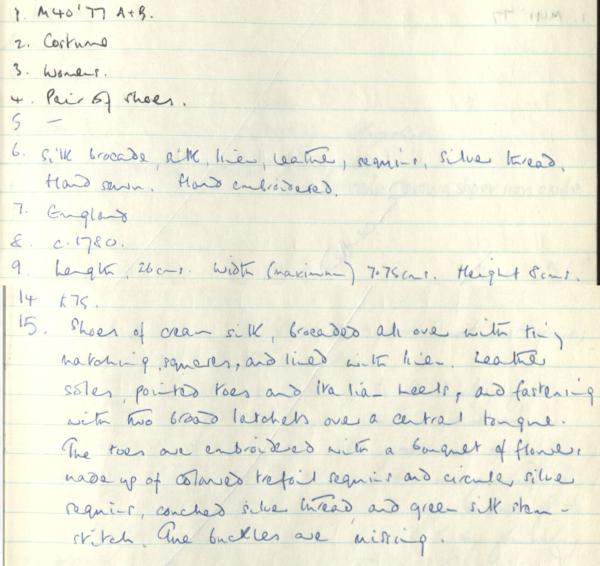 1. M40'77 A+B.
2. Costume
3. Womens.
4. Pair of shoes.
5 —
6. Silk brocade, silk, linen, leather, sequins, silver thread.
Hand sewn. Hand embroidered.
7. England
8. c.1780.
9. Length, 26cms. Width (maximum) 7.75cms. Height 8cms.
14 £75.
15. Shoes of cream silk, brocaded all over with tiny
matching squares, and lined with linen. Leather
soles, pointed toes and Italian heels, and fastening
with two broad latchets over a central tongue.
The toes are embroidered with a bouquet of flowers
made up of coloured trefoil sequins and circular silver
sequins, couched silver thread and green silk stem-
stitch. The buckles are missing.